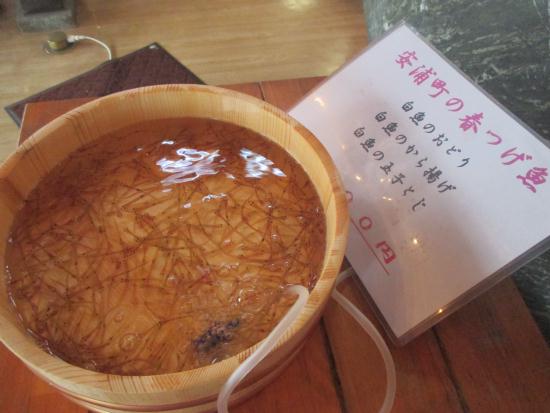 安浦町の春つげ魚
白魚のおどり
白魚のから揚げ
白魚の玉子とじ
００円